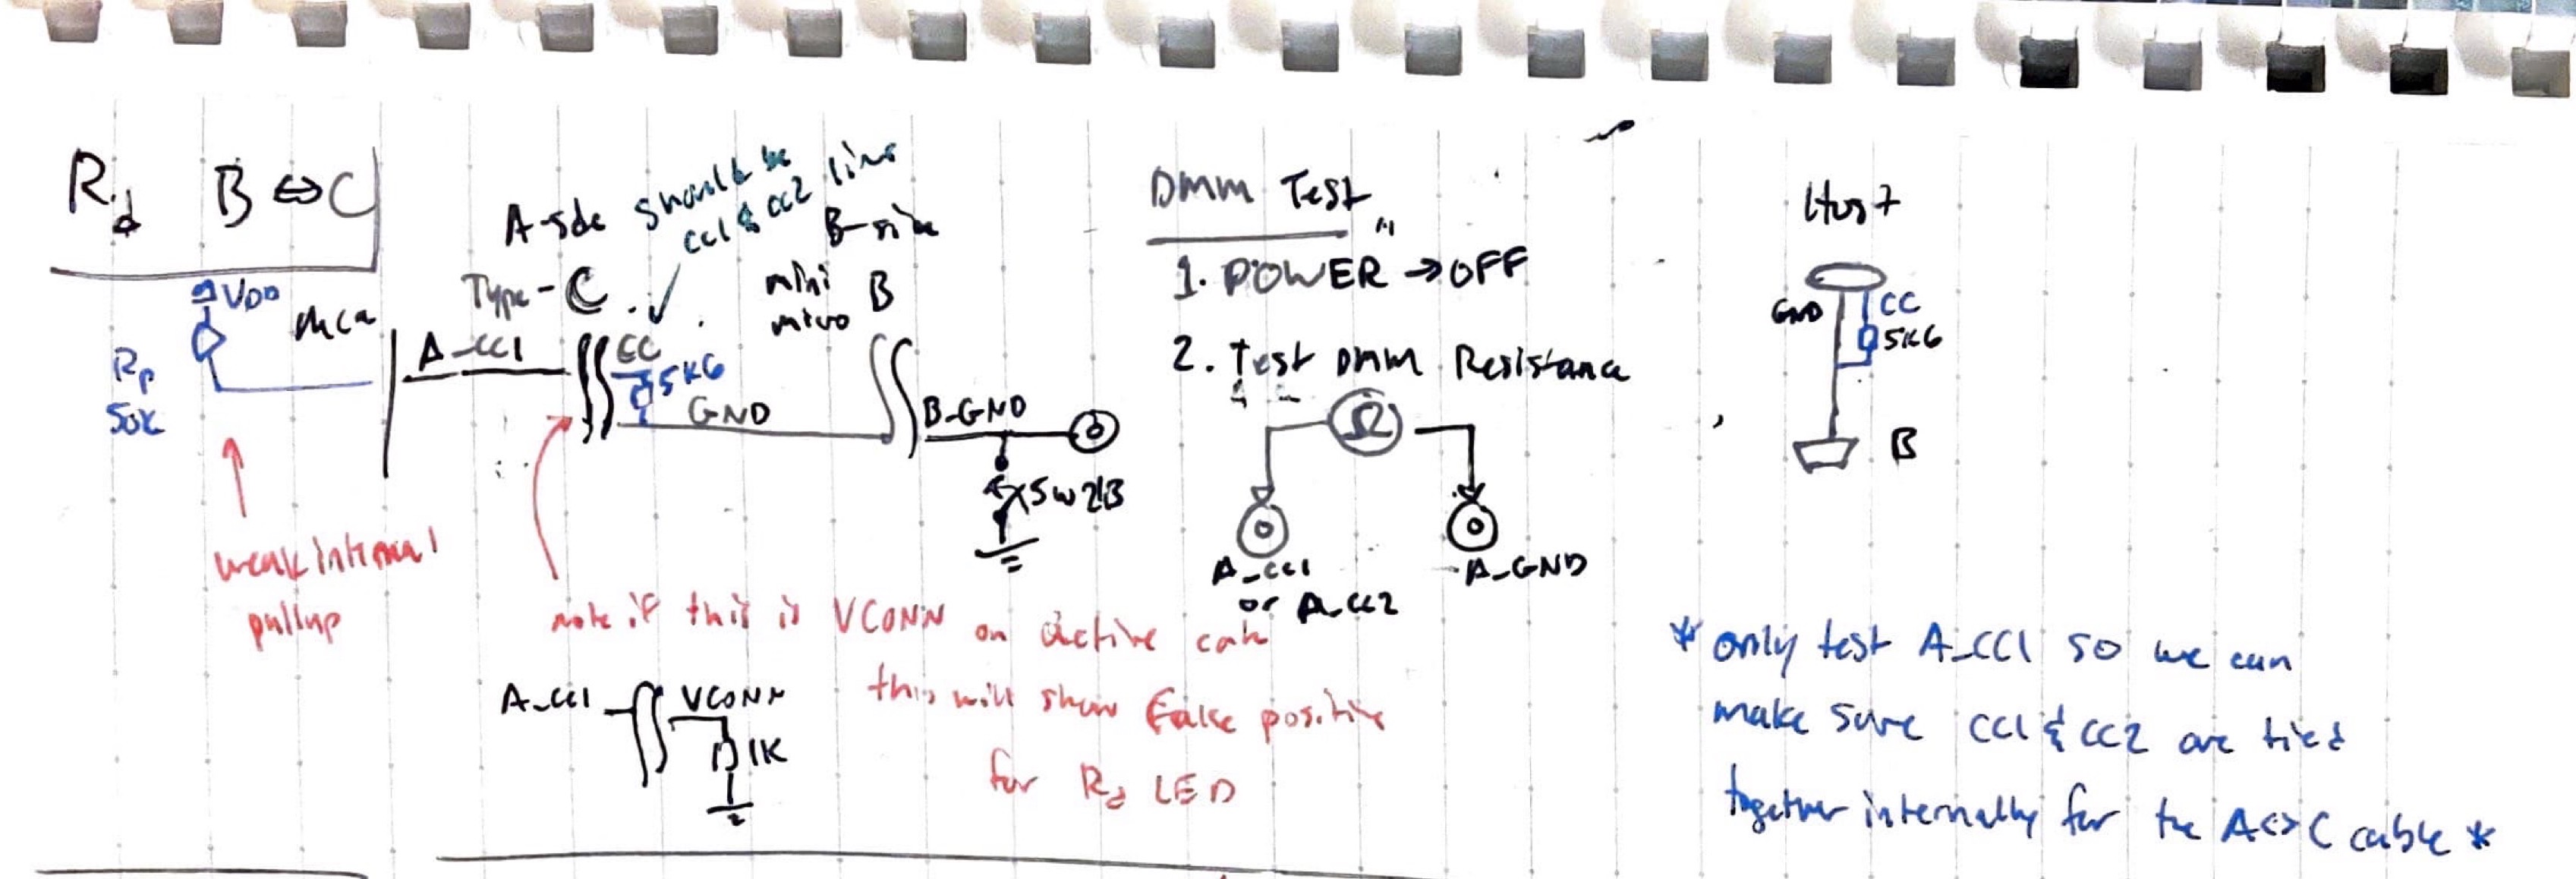 Rd B ⇔ C
VDD
Rp
50K
weak internal
pullup
A-side
should be
CC1 & CC2 line
B-side
Type-C
mini
micro
B
A_CC1
CC
5K6
GND
B_GND
SW2B
note if this is VCONN on active
this will show false positive
for Rd LED
A_CC1
VCONN
1K
DMM Test
1. POWER → OFF
2. Test DMM Resistance
Ω
A_CC1
or A_CC2
A_GND
Host
GND
CC
5K6
B
* only test A_CC1 so we can
make sure CC1 & CC2 are tied
together internally for the A<>C cable *